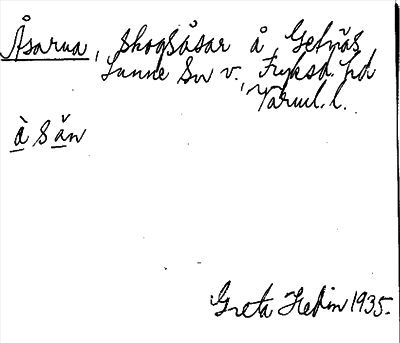 Åsarna, skogsåsar å Getnäs
Sunne Sn v., Fryksd. hd
Värml. l.
à sǎn
Greta Hedin 1935.